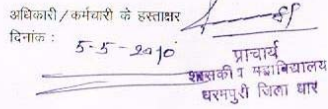 अधिकारी/कर्मचारी के हस्ताक्षर
दिनांक : 5-5-2010
प्राचार्य
शासकीय महाविद्यालय
धरमपुरी जिला धार